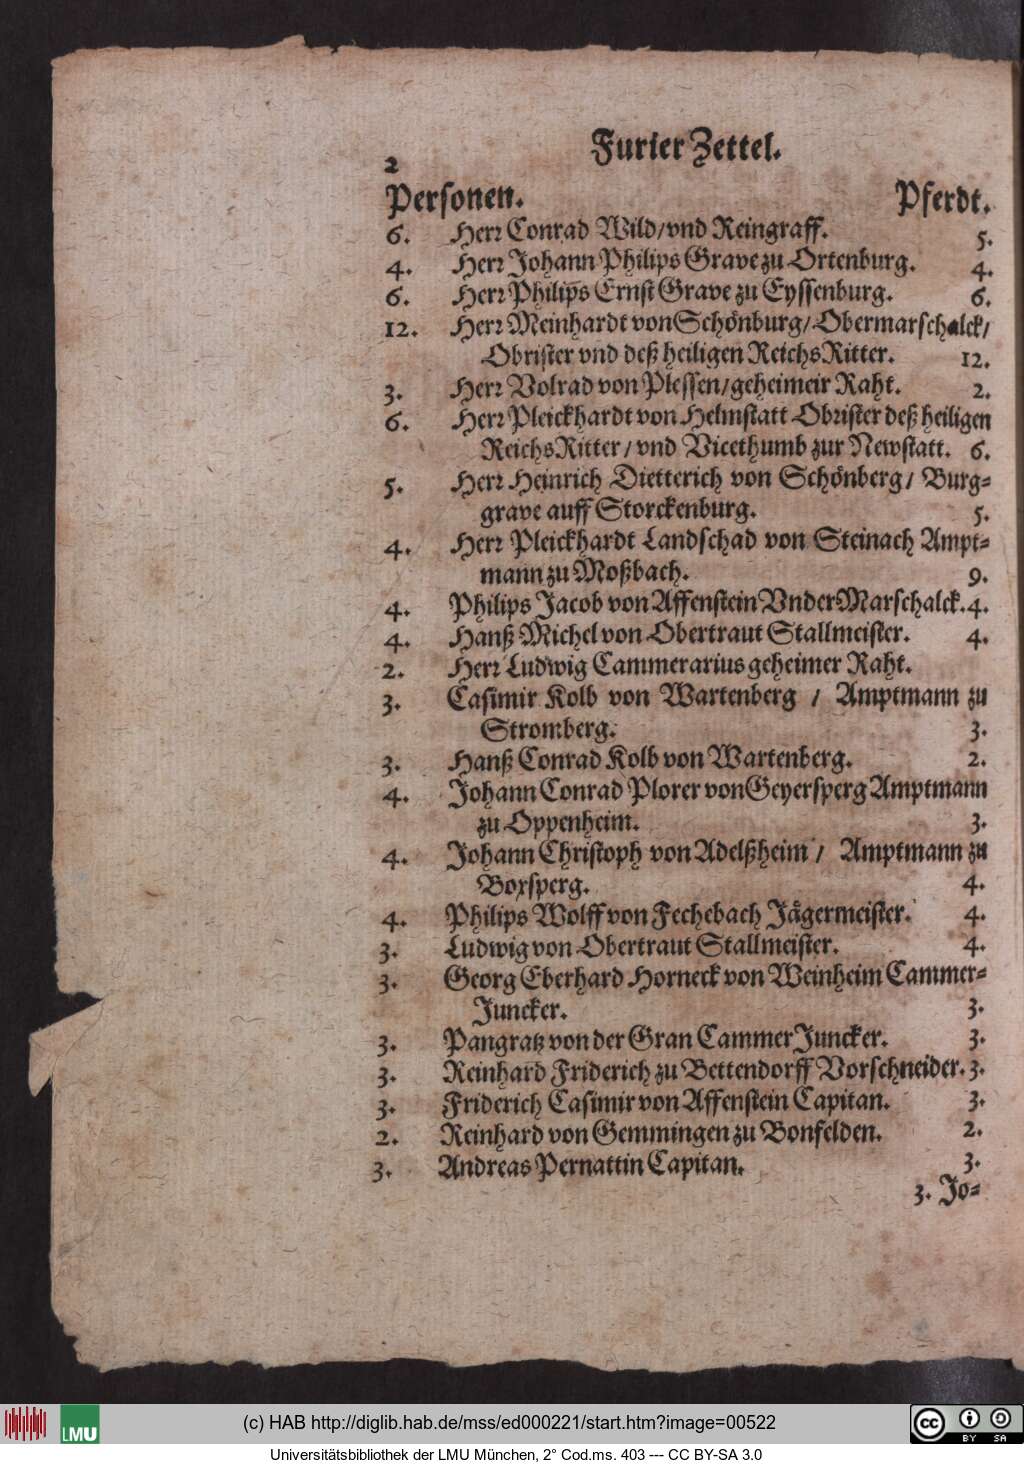 2
Furier Zettel.
Personen. Pferdt.
6. Herr Conrad Wild/vnd Reingraff. 5.
4. Herr Johann Philips Grave zu Ortenburg. 4.
6. Herr Philips Ernst Grave zu Eyssenburg. 6.
12. Herr Meinhardt von Schönburg/Obermarschalck/
Obrister vnd deß heiligen ReichsRitter. 12.
3. Herr Volrad von Plessen/geheimeir Raht. 2.
6. Herr Pleickhardt von Helmstatt Obrister deß heiligen
ReichsRitter/vnd Vicethumb zur Newstatt. 6.
5. Herr Heinrich Dietterich von Schönberg/ Burg-
grave auff Storckenburg. 5.
4. Herr Pleickhardt Landschad von Steinach Ampt-
mann zu Moßbach. 9.
4. Philips Jacob von Affenstein VnderMarschalck. 4.
4. Hanß Michel von Obertraut Stallmeister. 4.
2. Herr Ludwig Cammerarius geheimer Raht.
3. Casimir Kolb von Wartenberg / Amptmann zu
Stromberg. 3.
3. Hanß Conrad Kolb von Wartenberg. 2.
4. Johann Conrad Plorer von Geyersperg Amptmann
zu Oppenheim. 3.
4. Johann Christoph von Adelßheim / Amptmann zu
Boxsperg. 4.
4. Philips Wolff von Fechebach Jägermeister. 4.
3. Ludwig von Obertraut Stallmeister. 4.
3. Georg Eberhard Horneck von Weinheim Cammer-
Juncker. 3.
3. Pangratz von der Gran CammerJuncker. 3.
3. Reinhard Friderich zu Bettendorff Vorschneider. 3.
3. Friderich Casimir von Affenstein Capitan. 3.
2. Reinhard von Gemmingen zu Bonfelden. 2.
3. Andreas Pernattin Capitan. 3.
3. Jo-
LMU
(c) HAB http://diglib.hab.de/mss/ed000221/start.htm?image=00522
cc BY SA
Universitätsbibliothek der LMU München, 2° Cod.ms. 403 --- CC BY-SA 3.0